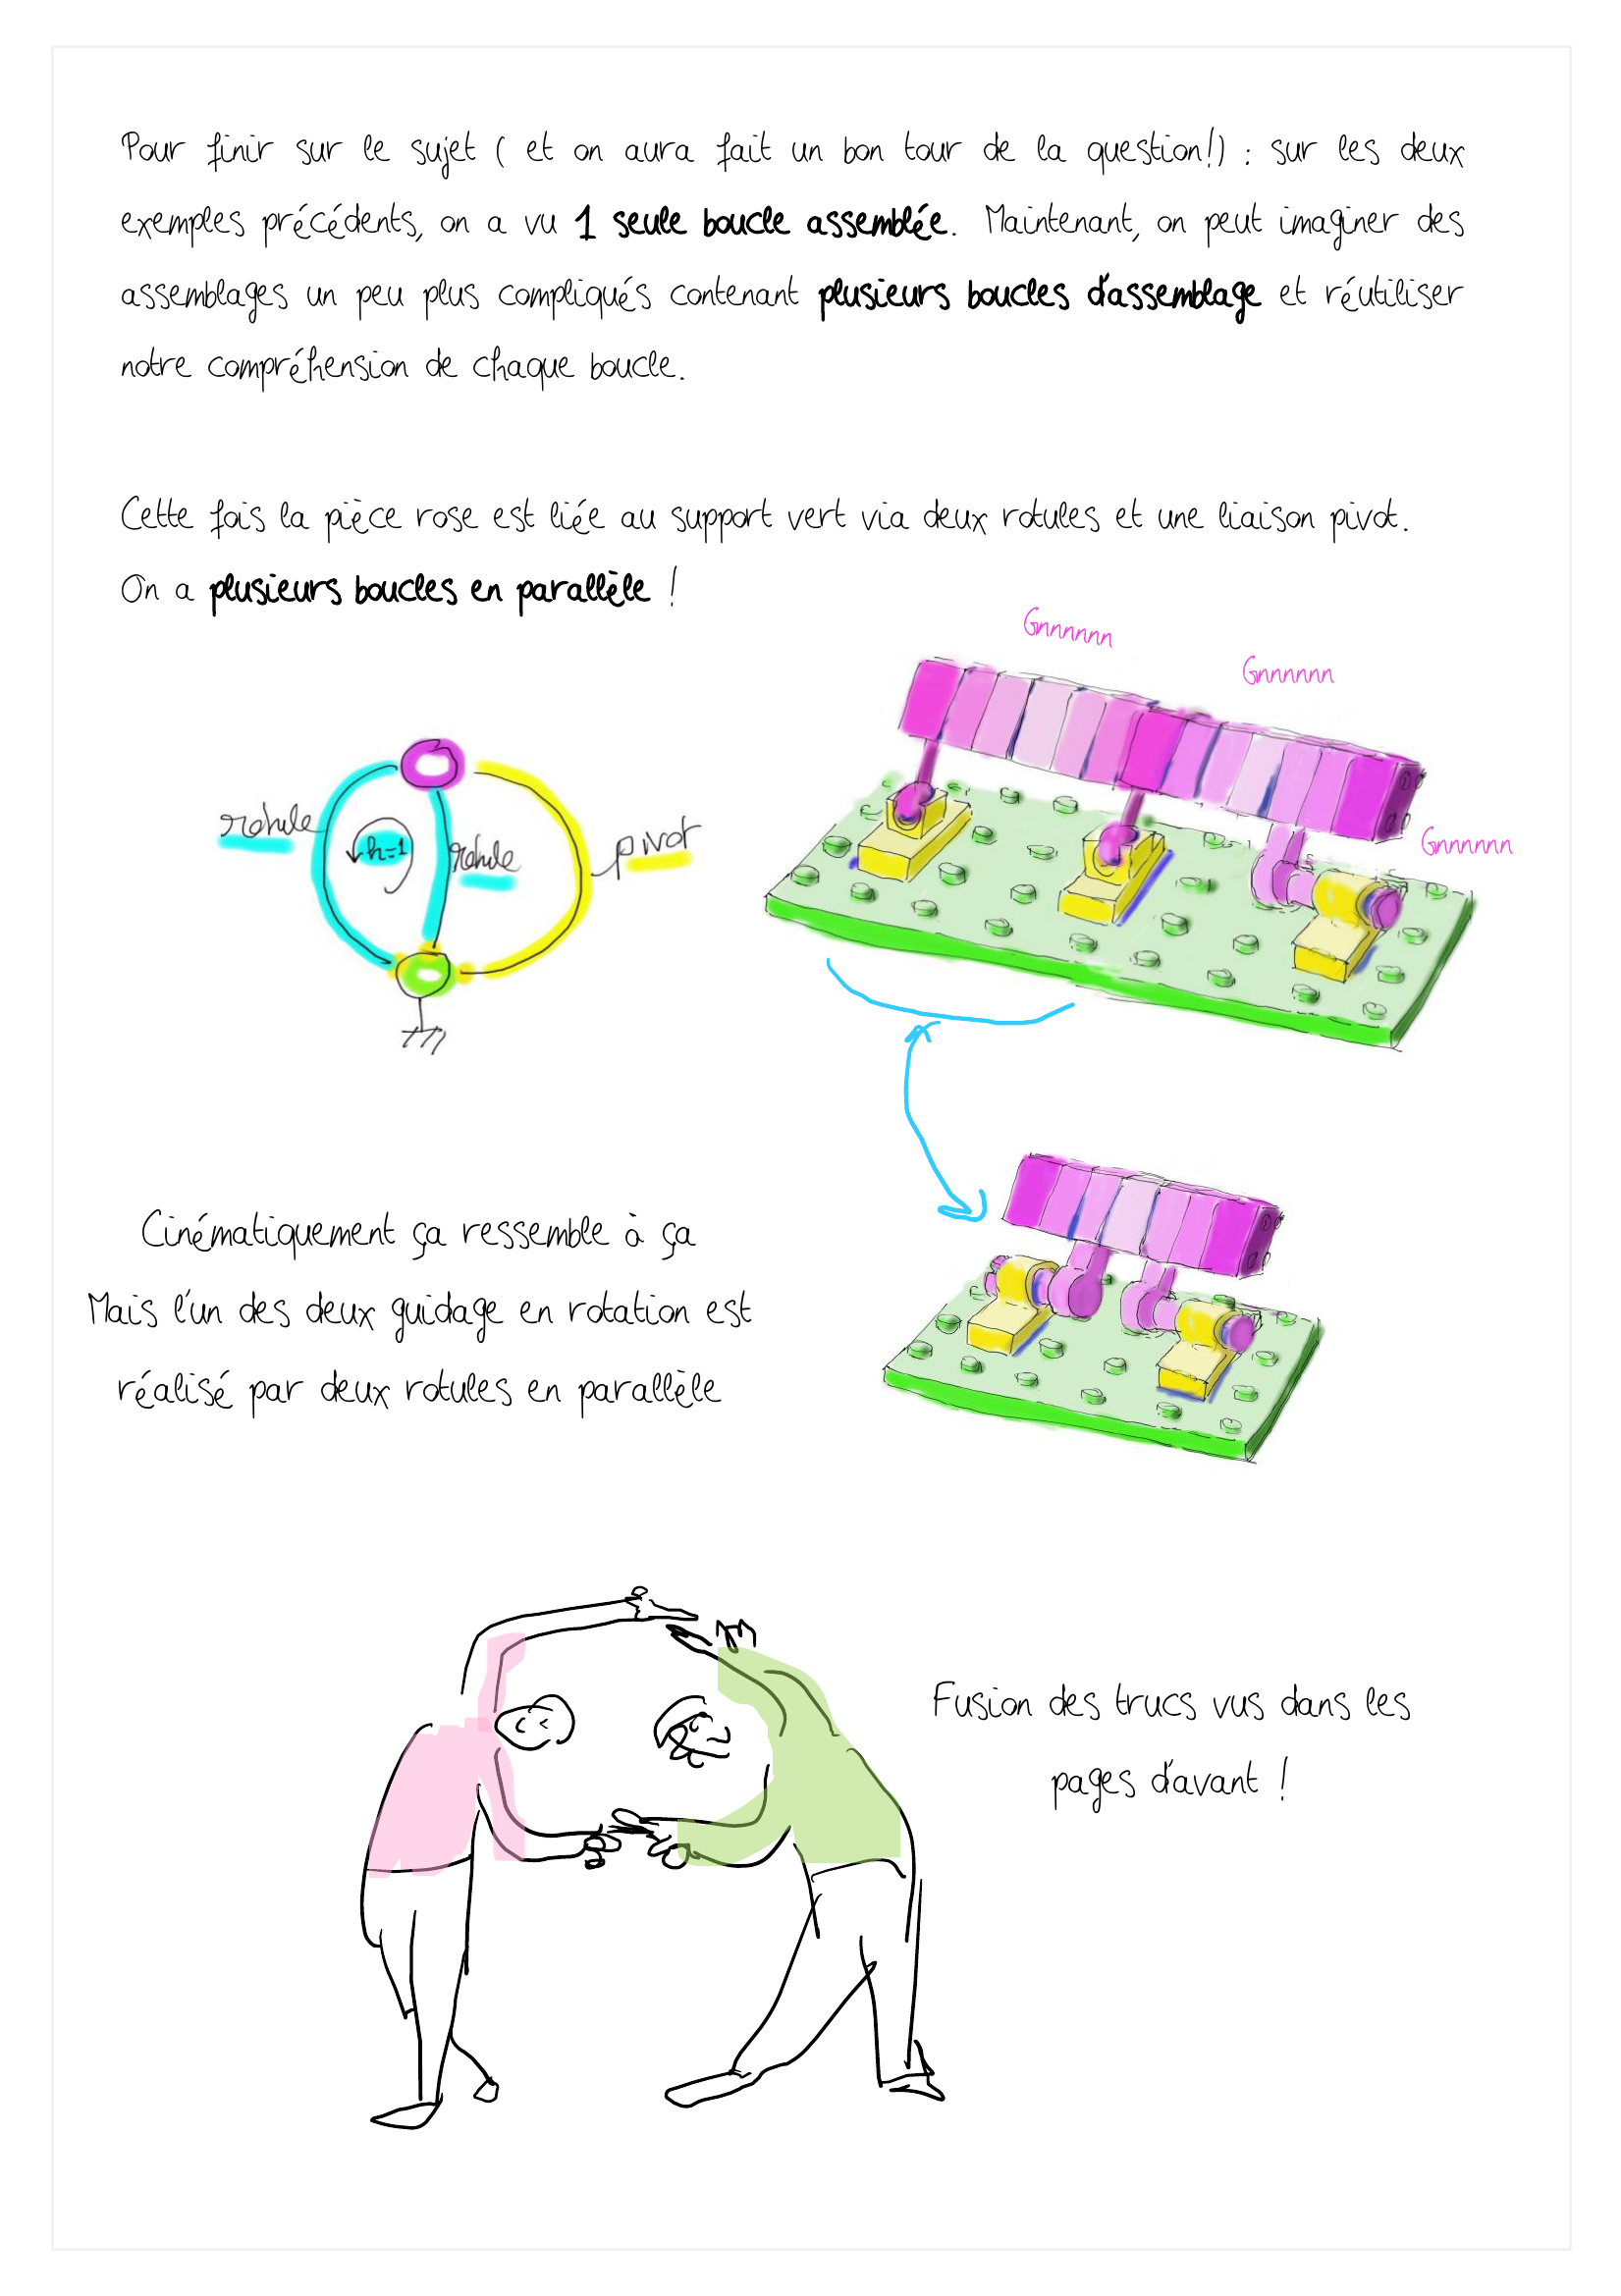 Pour finir sur le sujet ( et on aura fait un bon tour de la question!) : sur les deux
exemples précédents, on a vu 1 seule boucle assemblée. Maintenant, on peut imaginer des
assemblages un peu plus compliqués contenant plusieurs boucles d'assemblage et réutiliser
notre compréhension de chaque boucle.
Cette fois la pièce rose est liée au support vert via deux rotules et une liaison pivot.
On a plusieurs boucles en parallèle !
Gnnnnnn
Gnnnnnn
Gnnnnnn
rotule
h=1
rotule
pivot
Cinématiquement ça ressemble à ça
Mais l'un des deux guidage en rotation est
réalisé par deux rotules en parallèle
Fusion des trucs vus dans les
pages d'avant !